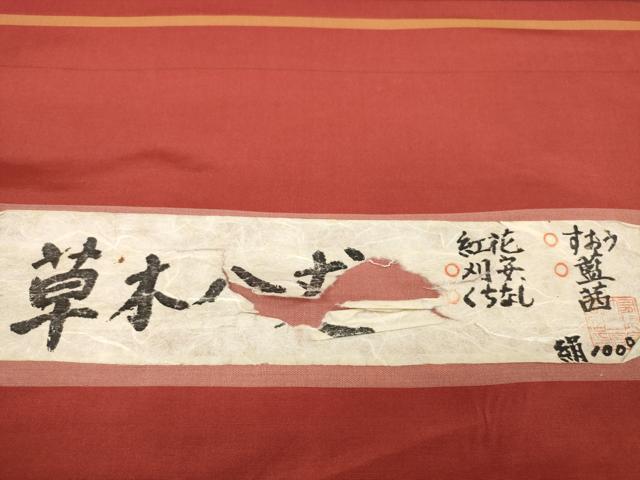 草木八
紅花
刈安
くちなし
すおう
藍
茜
絹100%